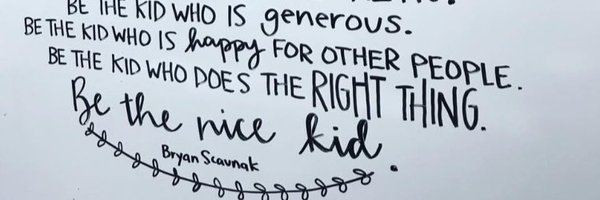 BE THE KID WHO IS generous.
BE THE KID WHO IS happy FOR OTHER PEOPLE.
BE THE KID WHO DOES THE RIGHT THING.
Be the nice kid.
Bryan Scavnak